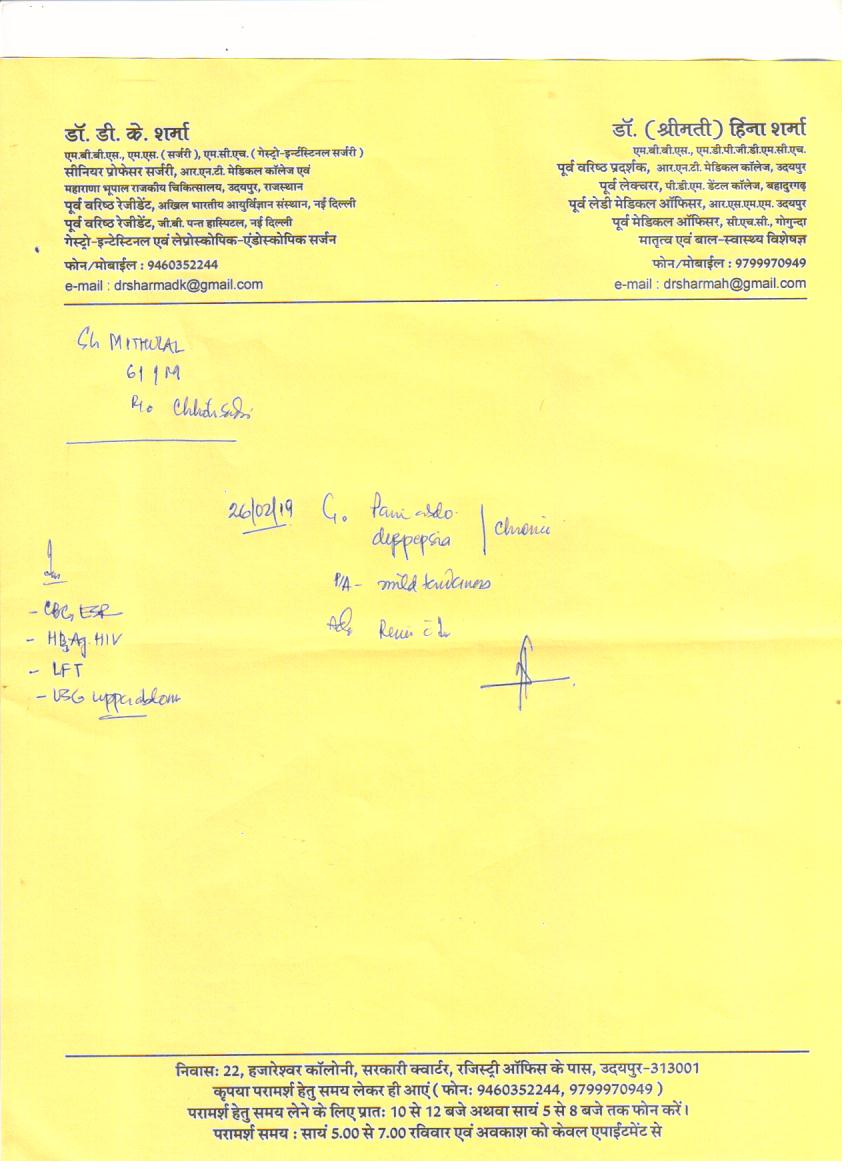 डॉ. डी. के. शर्मा
एम.बी.बी.एस., एम.एस. ( सर्जरी ), एम.सी.एच. ( गेस्ट्रो-इन्टेस्टिनल सर्जरी )
सीनियर प्रोफेसर सर्जरी, आर.एन.टी. मेडिकल कॉलेज एवं
महाराणा भूपाल राजकीय चिकित्सालय, उदयपुर, राजस्थान
पूर्व वरिष्ठ रेजीडेंट, अखिल भारतीय आयुर्विज्ञान संस्थान, नई दिल्ली
पूर्व वरिष्ठ रेजीडेंट, जी.बी. पन्त हास्पिटल, नई दिल्ली
गेस्ट्रो-इन्टेस्टिनल एवं लेप्रोस्कोपिक-एंडोस्कोपिक सर्जन
फोन/मोबाईल : 9460352244
e-mail : drsharmadk@gmail.com
डॉ. (श्रीमती) हिना शर्मा
एम.बी.बी.एस., एम.डी.पी.जी.डी.एम.सी.एच.
पूर्व वरिष्ठ प्रदर्शक, आर.एन.टी. मेडिकल कॉलेज, उदयपुर
पूर्व लेक्चरर, पी.डी.एम. डेंटल कॉलेज, बहादुरगढ़
पूर्व लेडी मेडिकल ऑफिसर, आर.एस.एम.एम. उदयपुर
पूर्व मेडिकल ऑफिसर, सी.एच.सी., गोगुन्दा
मातृत्व एवं बाल-स्वास्थ्य विशेषज्ञ
फोन/मोबाईल : 9799970949
e-mail : drsharmah@gmail.com
Sh MITHULAL
61 / M
R/o
26/02/19 C/o Pain abdo.
dyspepsia | chronic
P/A - mild tenderness
Adv
- CBC, ESR
- HBsAg. HIV
- LFT
- USG upper abdomen
निवासः 22, हजारेश्वर कॉलोनी, सरकारी क्वार्टर, रजिस्ट्री ऑफिस के पास, उदयपुर-313001
कृपया परामर्श हेतु समय लेकर ही आएं ( फोनः 9460352244, 9799970949 )
परामर्श हेतु समय लेने के लिए प्रातः 10 से 12 बजे अथवा सायं 5 से 8 बजे तक फोन करें।
परामर्श समय : सायं 5.00 से 7.00 रविवार एवं अवकाश को केवल एपाईंटमेंट से